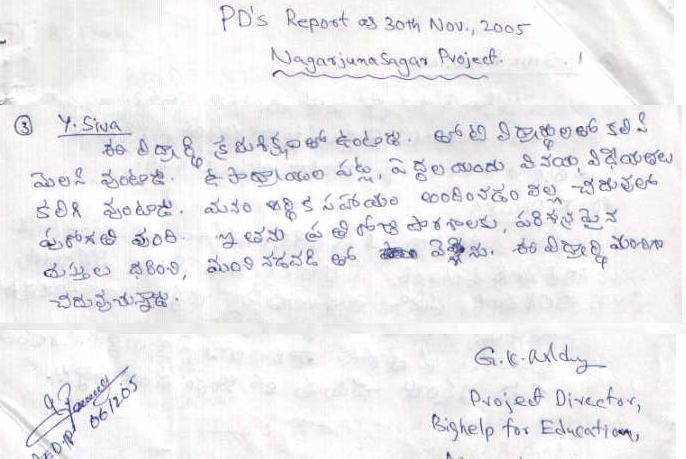 PD's Report as 30th Nov., 2005
Nagarjuna Sagar Project.
③ Y. Siva
ఈ విద్యార్థి క్రమశిక్షణతో ఉంటాడు. తోటి విద్యార్థులతో కలిసి
మెలసి వుంటాడు. ఉపాధ్యాయుల పట్ల, పెద్దల యందు, వినయ విధేయతలు
కలిగి వుంటాడు. మనం ఆర్థిక సహాయం అందించడం వల్ల చదువులో
పురోగతి వుంది. ఇతను ప్రతిరోజు పాఠశాలకు, పరిశుభ్రమైన
దుస్తులు ధరించి, మంచి నడవడి తో వెళ్తాడు. ఈ విద్యార్థి మంచిగా
చదువుచున్నాడు.
061205
Project Director,
Bighelp for Education,